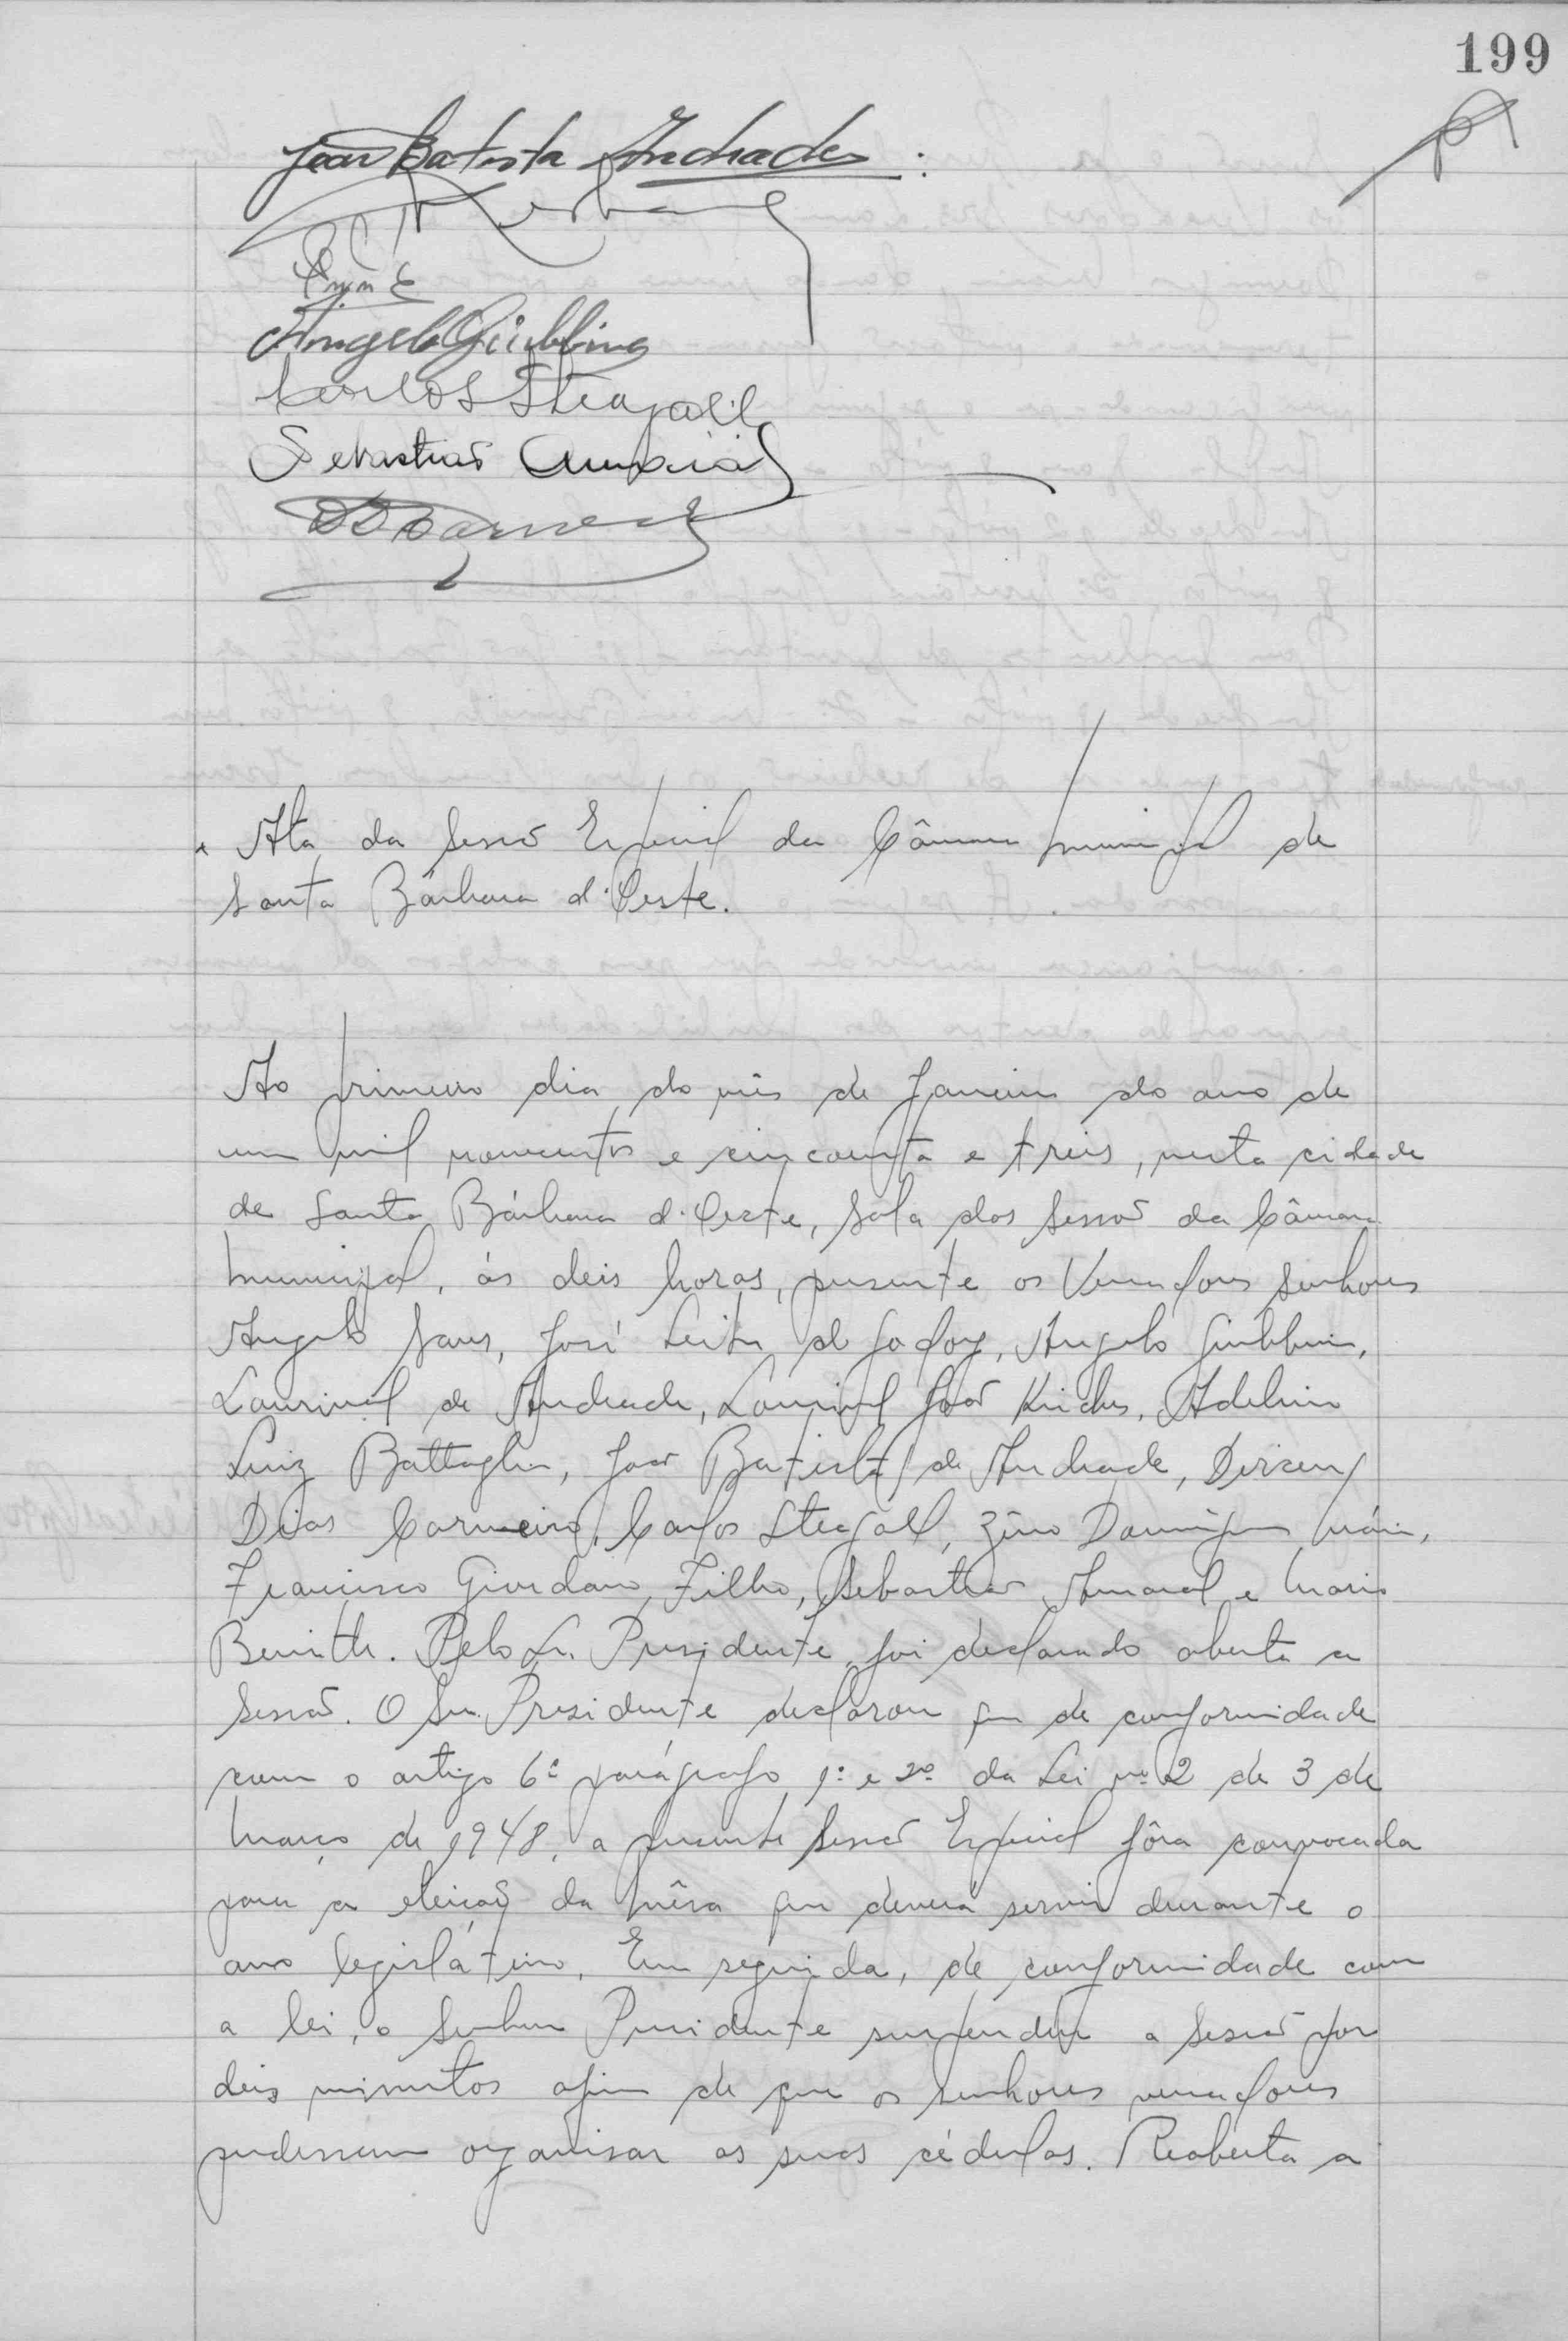 199
João Batista Andrade
Angelo Giubbina
Carlos Steagall
Sebastião Amaral
DDCarneiro
Ata da Sessão Especial da Câmara Municipal de
Santa Bárbara d'Oeste.
Ao primeiro dia do mês de Janeiro do ano de
um mil novecentos e cincoenta e treis, nesta cidade
de Santa Bárbara d'Oeste, sala das Sessões da Câmara
Municipal, ás deis horas, presente os Vereadores Senhores
Angelo Sans, José Leite de Godoy, Angelo Giubbina,
Lourival de Andrade, Lourival João Kriches, Adelino
Luiz Battaglia, João Batista de Andrade, Dirceu
Dias Carneiro, Carlos Steagall, Zino Domingues Máia,
Francisco Giordano Filho, Sebastião Amaral e Mario
Benith. Pelo Sr. Presidente, foi declarado aberta a
Sessão. O Snr. Presidente declarou que de conformidade
com o artigo 6º parágrafo 1º e 2º da Lei nº 2 de 3 de
Março de 1948, a presente Sessão Especial fôra convocada
para a eleição da Mêsa que deverá servir durante o
ano legislátivo. Em seguida, de conformidade com
a lei, o Senhor Presidente suspendeu a Sessão por
deis minutos afim de que os Senhores vereadores
pudessem organisar as suas cédulas. Reaberta a